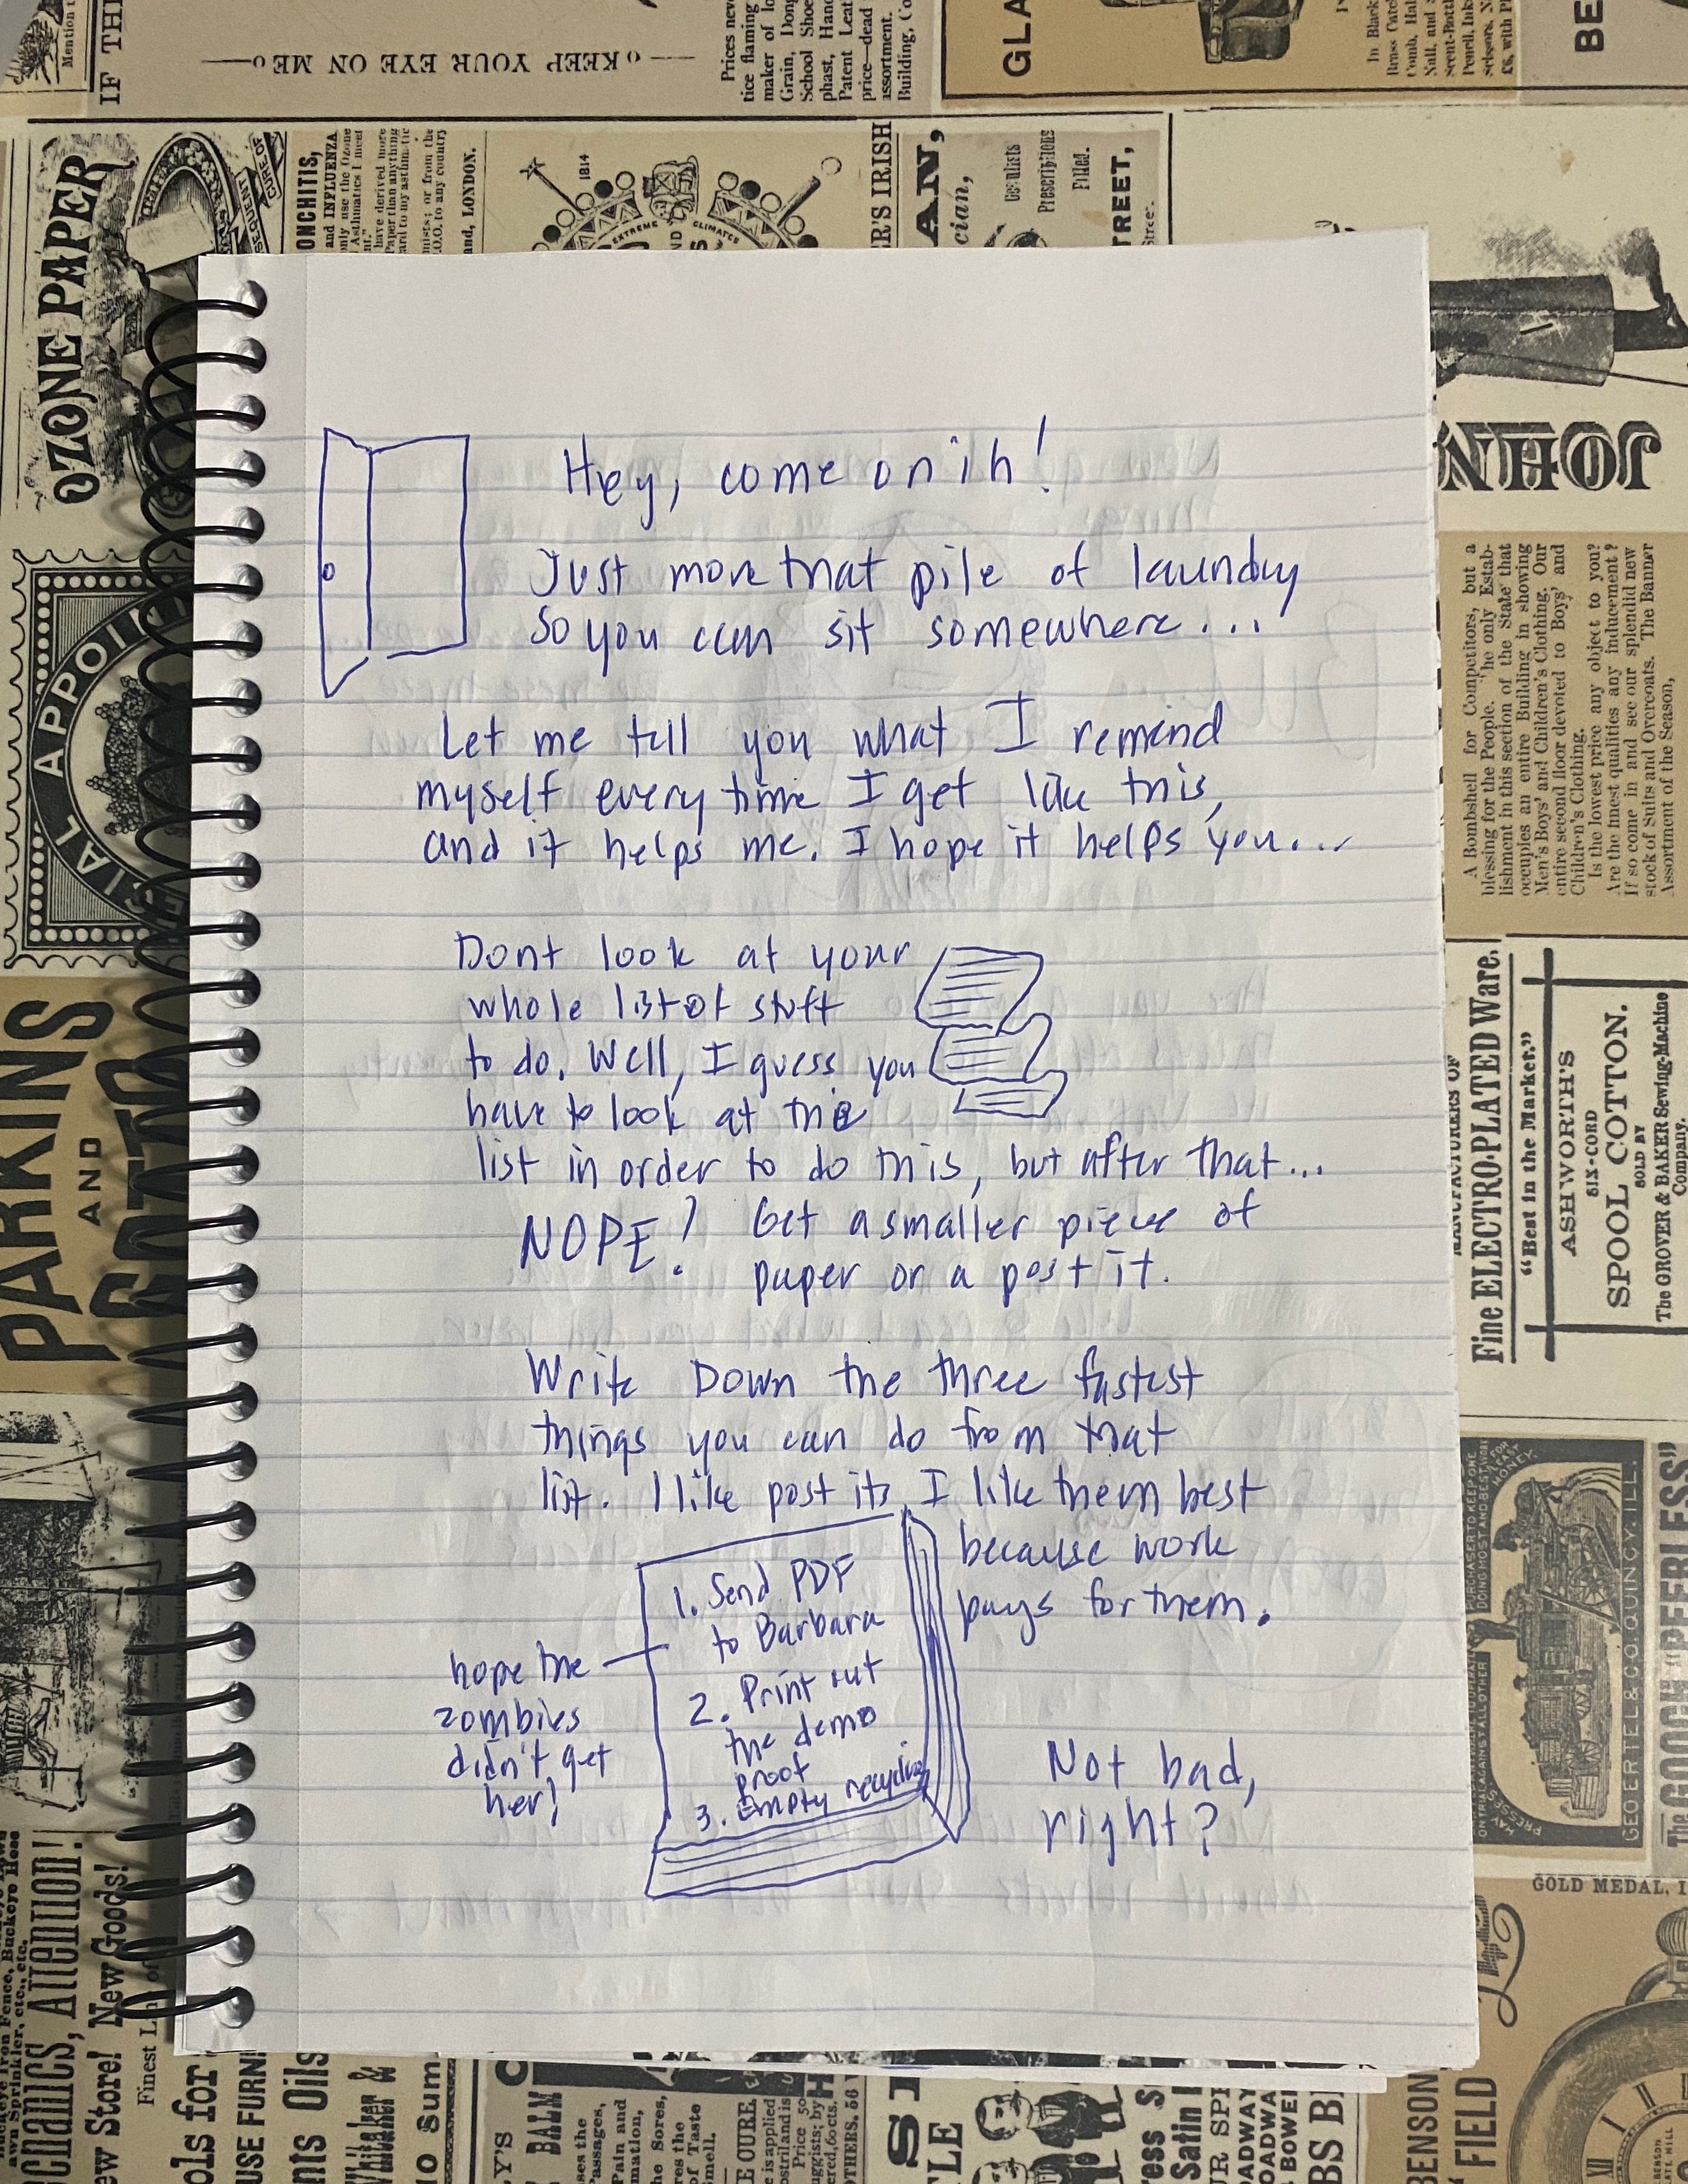 Hey, come on in!
Just move that pile of laundry
so you can sit somewhere...
Let me tell you what I remind
myself every time I get like this,
and it helps me. I hope it helps you...
Dont look at your
whole list of stuff
to do. Well, I guess you
have to look at the
list in order to do this, but after that...
NOPE! Get a smaller piece of
paper or a post it.
Write Down the three fastest
things you can do from that
list. I like post its, I like them best
because work
pays for them.
1. Send PDF
to Barbara
2. Print out
the demo
proof
3. Empty recycling
hope the
zombies
didn't get
her!
Not bad,
right?
IF THE
KEEP YOUR EYE ON ME
GLA
BE
OZONE PAPER
ONCHITIS,
and INFLUENZA
and, LONDON.
1814
EXTREME
CLIMATES
ER'S IRISH
AN,
cian,
Oculists
Prescriptions
Filled.
TREET,
JOHN
IAL APPOIN
A Bombshell for Competitors, but a
blessing for the People. The only Estab-
lishment in this section of the State that
occupies an entire Building in showing
Men's Boys' and Children's Clothing. Our
entire second floor devoted to Boys' and
Children's Clothing.
Is the lowest price any object to you?
Are the finest qualities any inducement?
If so come in and see our splendid new
stock of Suits and Overcoats. The Banner
Assortment of the Season,
PARKINS
AND
GOTTO
MANUFACTURERS OF
Fine ELECTRO-PLATED Ware.
"Best in the Market."
ASHWORTH'S
SIX-CORD
SPOOL COTTON.
SOLD BY
The GROVER & BAKER Sewing-Machine
Company.
GEO ERTEL & CO. QUINCY, ILL.
The GOOCH "PEERLESS"
GOLD MEDAL,
chanics, Attention!
New Store! New Goods!
Finest L
ools for
USE FURNI
nts Oils
Whitaker &
BALM
BENSON
FIELD